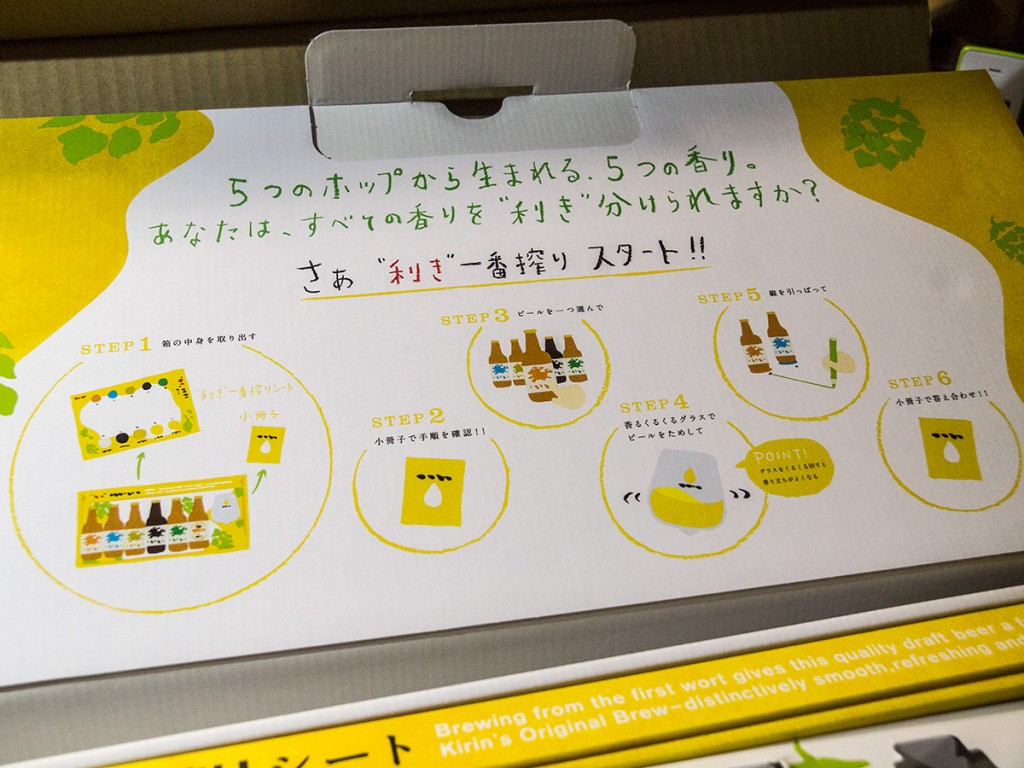 5つのホップから生まれる、5つの香り。
あなたは、すべての香りを"利き"分けられますか?
さぁ "利き"一番搾り スタート!!
STEP1 箱の中身を取り出す
"利き"一番搾りシート
小冊子
STEP2
小冊子で手順を確認!!
STEP3 ビールを一つ選んで
STEP4
香るくるくるグラスで
ビールをためして
POINT!
グラスをくるくる回すと
香り立ちがよくなる
STEP5 線を引っぱって
STEP6
小冊子で答え合わせ!!
Brewing from the first wort gives this quality draft beer a
Kirin's Original Brew-distinctively smooth,refreshing and
シート